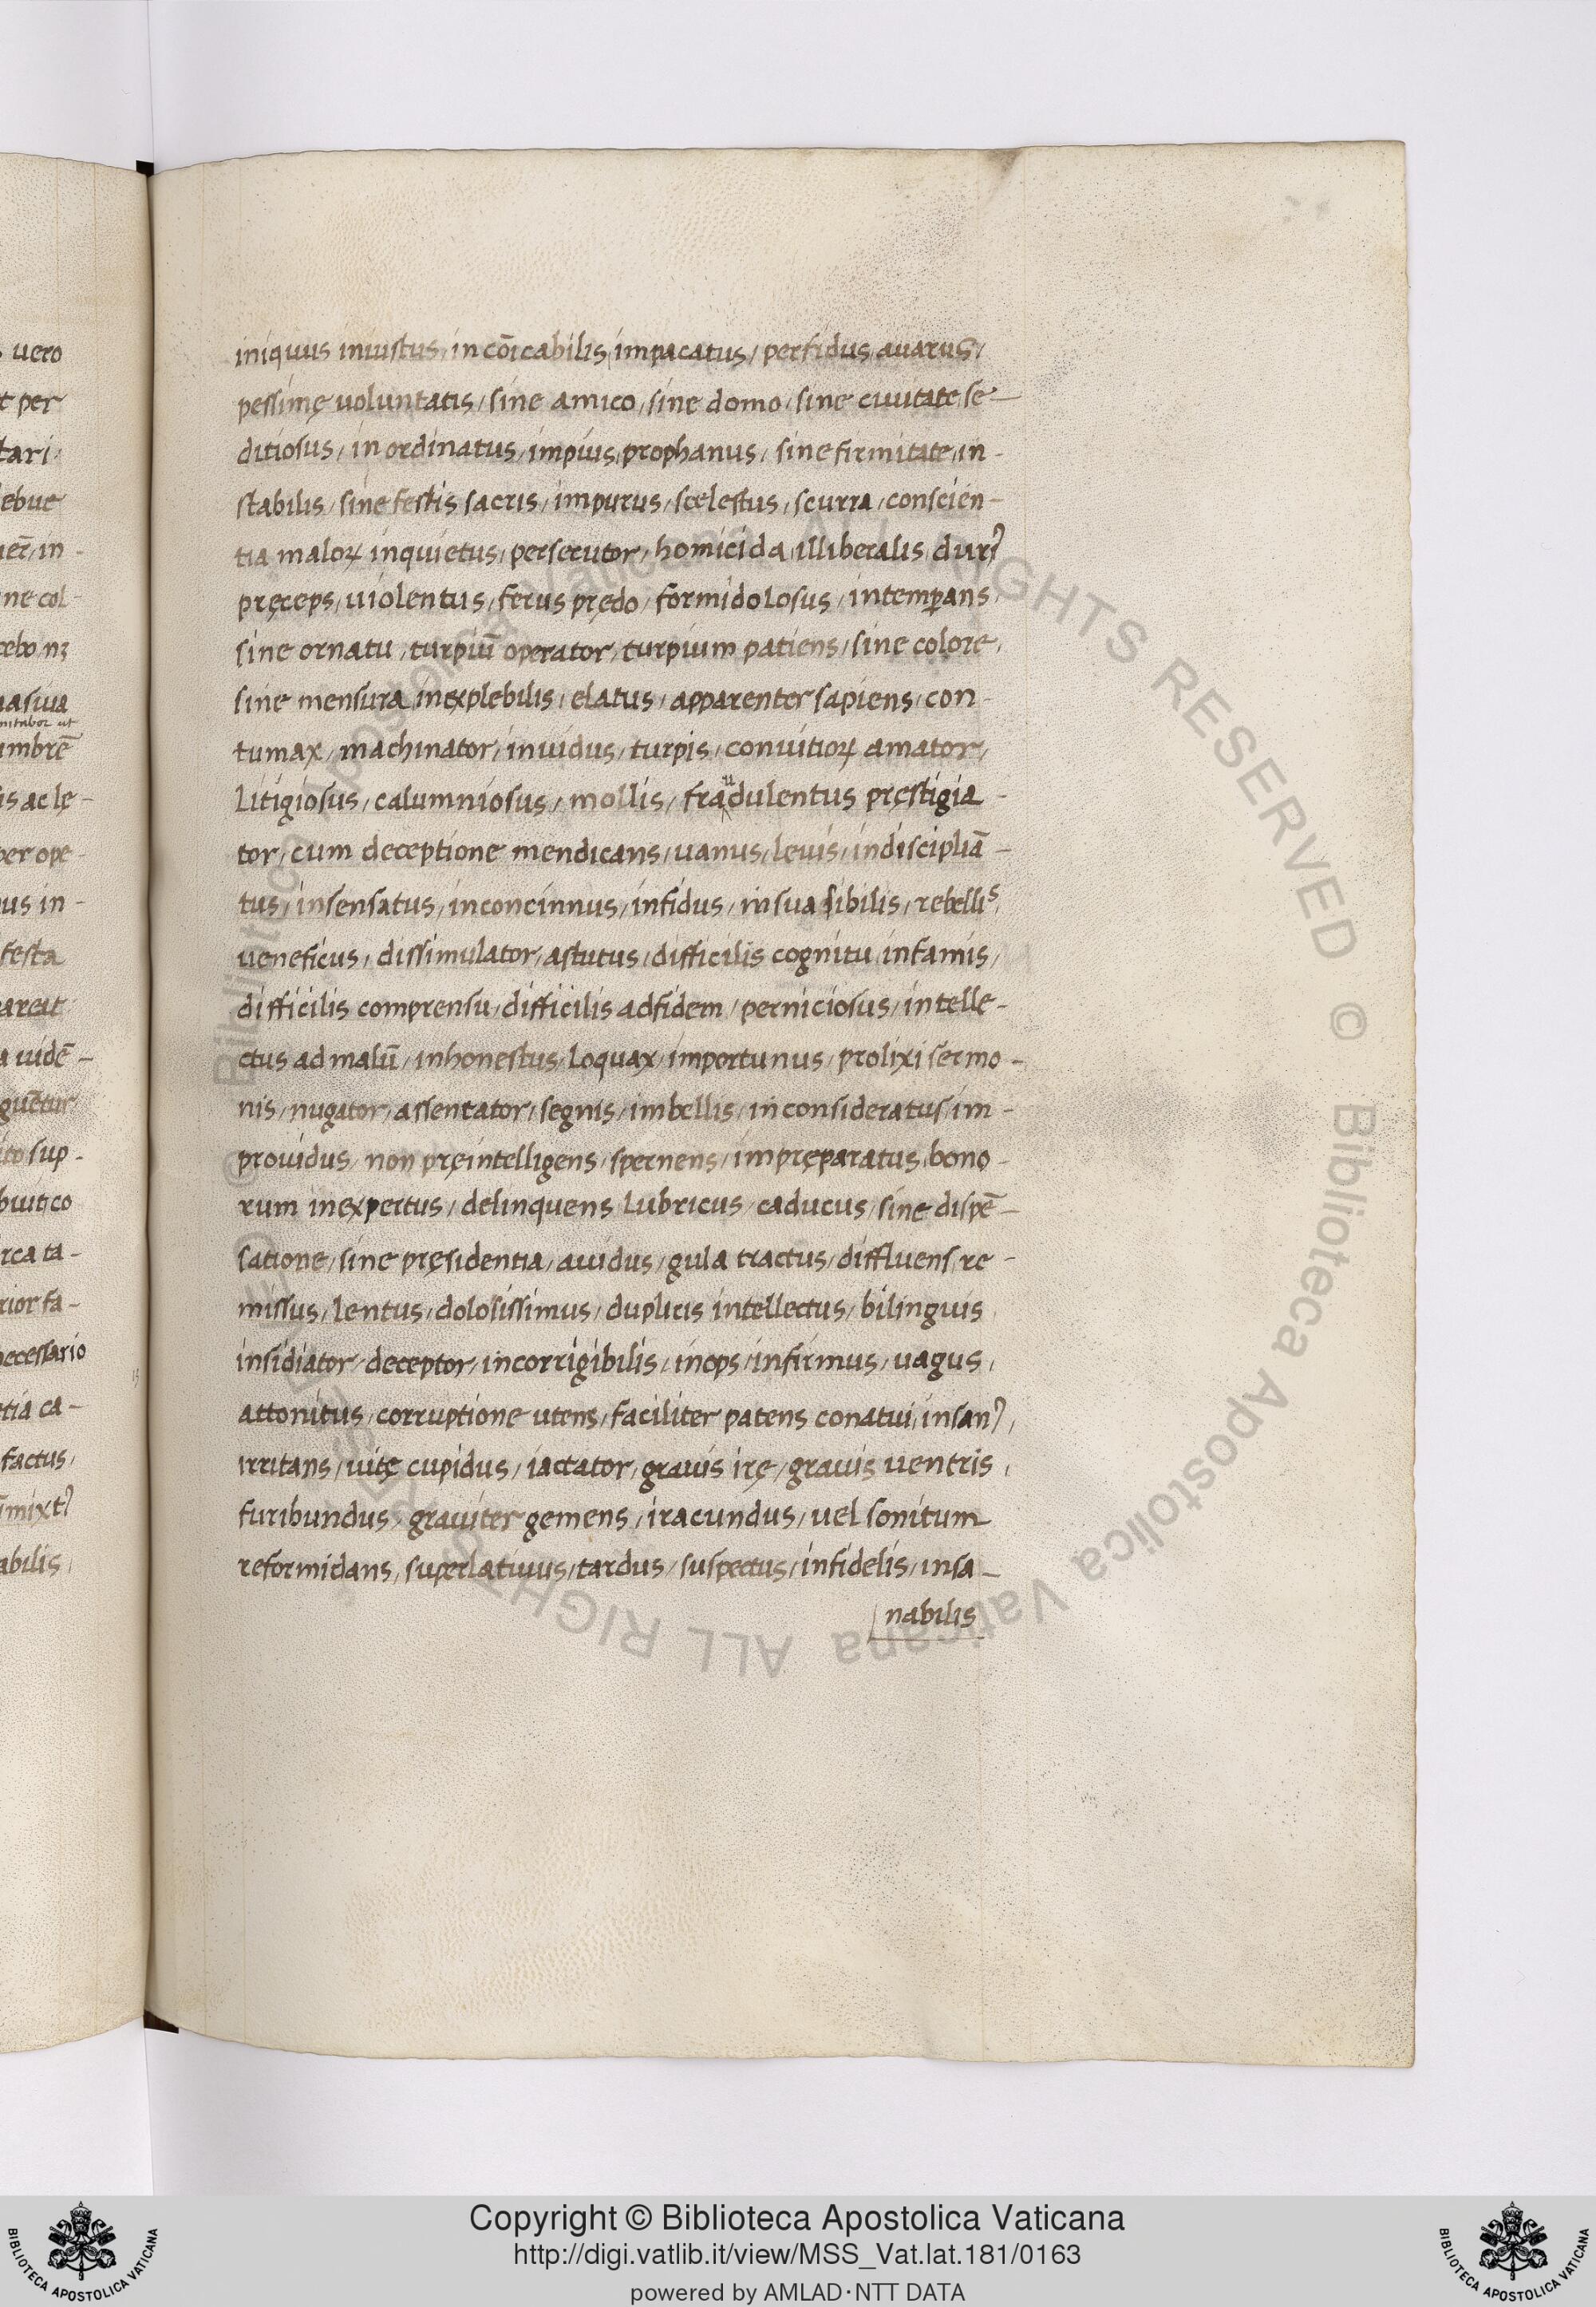 iniquus iniustus, in cōicabilis, impacatus, perfidus, auarus,
pessimę uoluntatis, sine amico, sine domo, sine ciuitate se-
ditiosus, in ordinatus, impius, prophanus, sine firmitate, in-
stabilis, sine festis sacris, impurus, scelestus, scurra, conscien-
tia maloꝝ inquietus, persecutor, homicida, illiberalis, durꝰ
pręceps, uiolentus, ferus prędo, formidolosus, intemꝑans,
sine ornatu, turpiū operator, turpium patiens, sine colore,
sine mensura, inexplebilis, elatus, apparenter sapiens, con-
tumax, machinator, inuidus, turpis, conuitioꝝ amator,
Litigiosus, calumniosus, mollis, fraudulentus pręstigia-
tor, cum deceptione mendicans, uanus, leuis, indiscipliā-
tus, insensatus, inconcinnus, infidus, insuasibilis, rebellis,
ueneficus, dissimulator, astutus, difficilis cognitu, infamis,
difficilis comprensu, difficilis adfidem, perniciosus, intelle-
ctus ad malū, inhonestus, loquax, importunus, prolixi sermo-
nis, nugator, assentator, segnis, imbellis, inconsideratus, im-
prouidus, non pręintelligens, spernens, impręparatus, bono-
rum inexpertus, delinquens lubricus, caducus, sine dispē-
satione, sine pręsidentia, auidus, gula tractus, diffluens, re-
missus, lentus, dolosissimus, duplicis intellectus, bilinguis,
insidiator, deceptor, incorrigibilis, inops, infirmus, uagus,
attonitus, corruptione utens, faciliter patens conatui, insanꝰ,
irritans, uitę cupidus, iactator, grauis irę, grauis uentris,
furibundus, grauiter gemens, iracundus, uel sonitum
reformidans, superlatiuus, tardus, suspectus, infidelis, insa-
nabilis
uero
per
tari
ebue
in-
ne col-
asiua
umbrē
is ac lę-
per ope-
us in-
festa
areat
a uidē-
guētur
ito sup-
buit co
rca ta-
rior fa-
necessario
tia ca-
factus,
mixtꝰ
abilis,
© Biblioteca Apostolica Vaticana ALL RIGHTS RESERVED
© Biblioteca Apostolica Vaticana ALL RIGHTS RESERVED
Copyright © Biblioteca Apostolica Vaticana
http://digi.vatlib.it/view/MSS_Vat.lat.181/0163
powered by AMLAD·NTT DATA
BIBLIOTECA APOSTOLICA VATICANA
BIBLIOTECA APOSTOLICA VATICANA